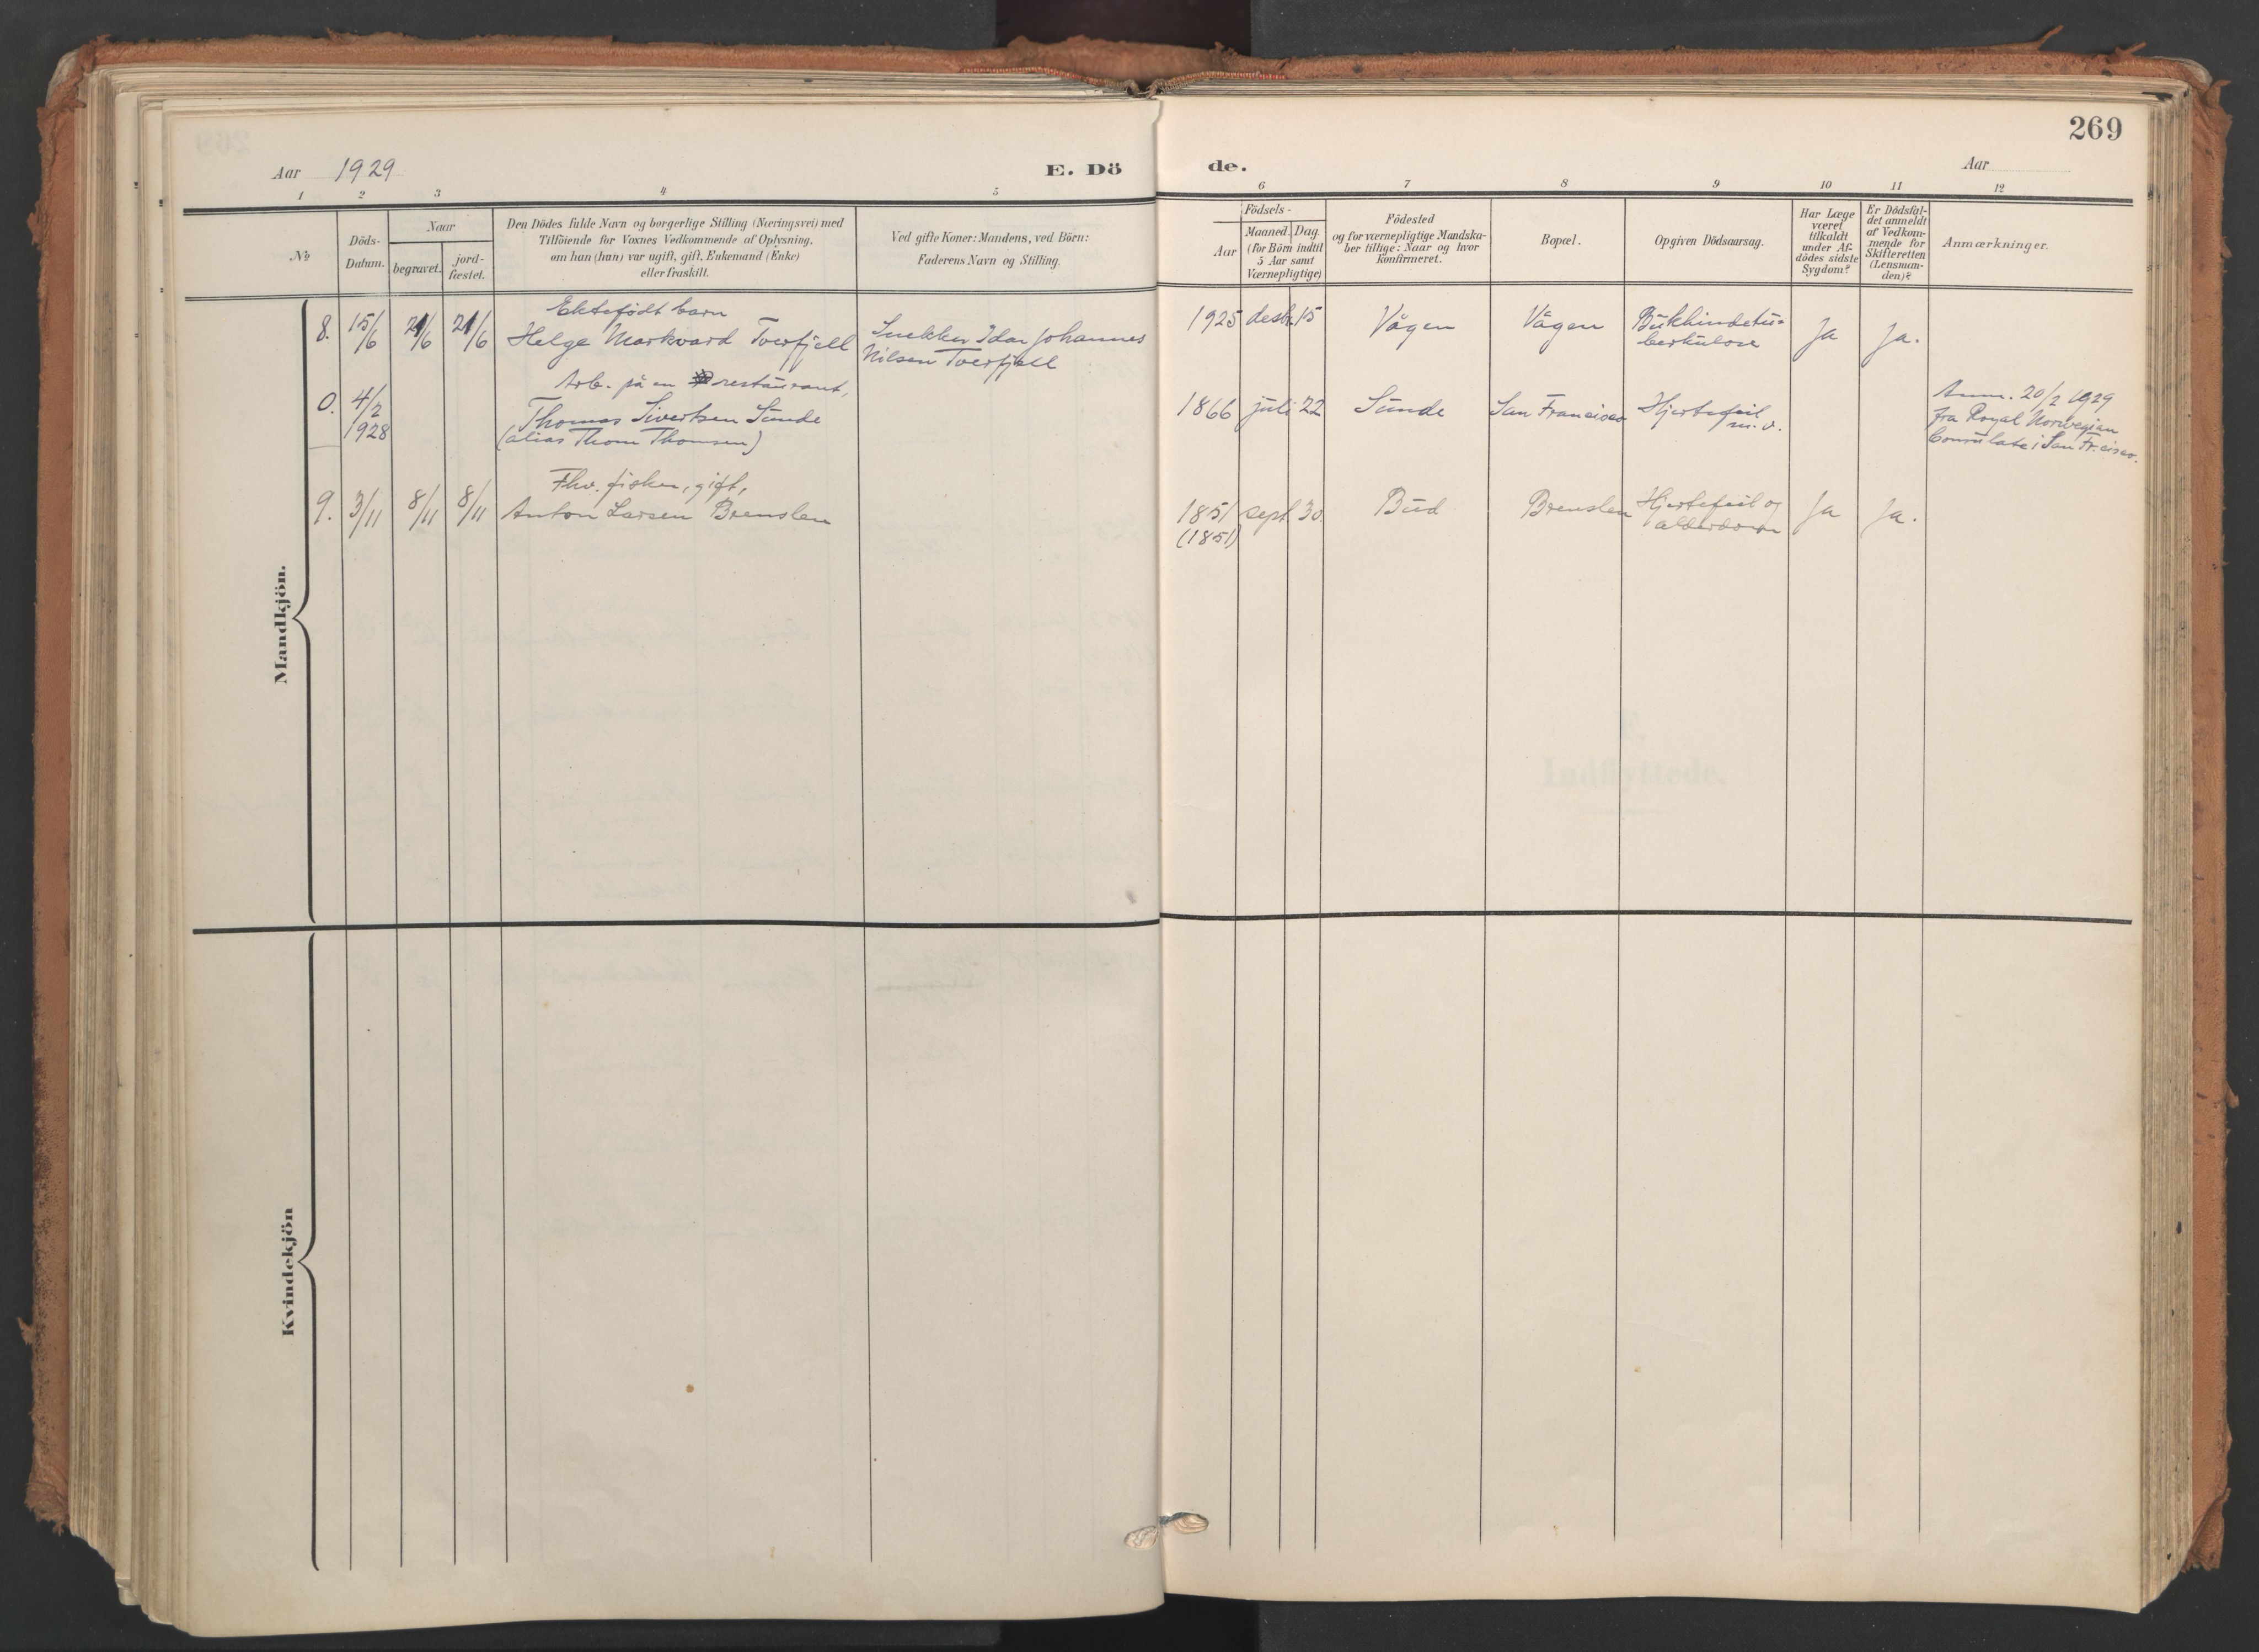 269
Aar 1929
E. Dö
de.
Aar
1 2 3 4 5 6 7 8 9 10 11 12
No
Döds-
Datum.
Naar
begravet.
jord-
fæstet.
Den Dödes fulde Navn og borgerlige Stilling (Næringsvei) med
Tilföiende for Voxnes Vedkommende af Oplysning,
om han (hun) var ugift, gift, Enkemand (Enke)
eller fraskilt.
Ved gifte Koner: Mandens, ved Börn:
Faderens Navn og Stilling.
Födsels-
Aar
Maaned. Dag.
(for Börn indtil
5 Aar samt
Værnepligtige)
Födested
og for værnepligtige Mandska-
ber tillige: Naar og hvor
konfirmeret.
Bopæl.
Opgiven Dödsaarsag.
Har Læge
været
tilkaldt
under Af-
dödes sidste
Sygdom?
Er Dödsfal-
det anmeldt
af Vedkom-
mende for
Skifteretten
(Lensman-
den)?
Anmærkninger.
Mandkjön.
Ektefödt barn
8. 15/6 21/6 21/6 Helge Markvard Tverfjell Snekker Idar Johannes
Nilsen Tverfjell
1925 desbr. 15 Vågen Vågen Bukhindetu-
berkulose Ja Ja.
Arb. på en restaurant,
0. 4/2
1928
Thomas Sivertsen Sunde
(alias Thom Thomsen)
1866 juli 22 Sunde San Francisco Hjertefeil
m.v.
Anm. 20/2 1929
fra Royal Norwegian
Consulate i San Fr.cisco.
Fhv. fisker, gift,
9. 3/11 8/11 8/11 Anton Larsen Brenslen
1851 sept. 30. Bud Brenslen Hjertefeil og
(1851) alderdom Ja Ja.
Indflyttede.
Kvindekjön